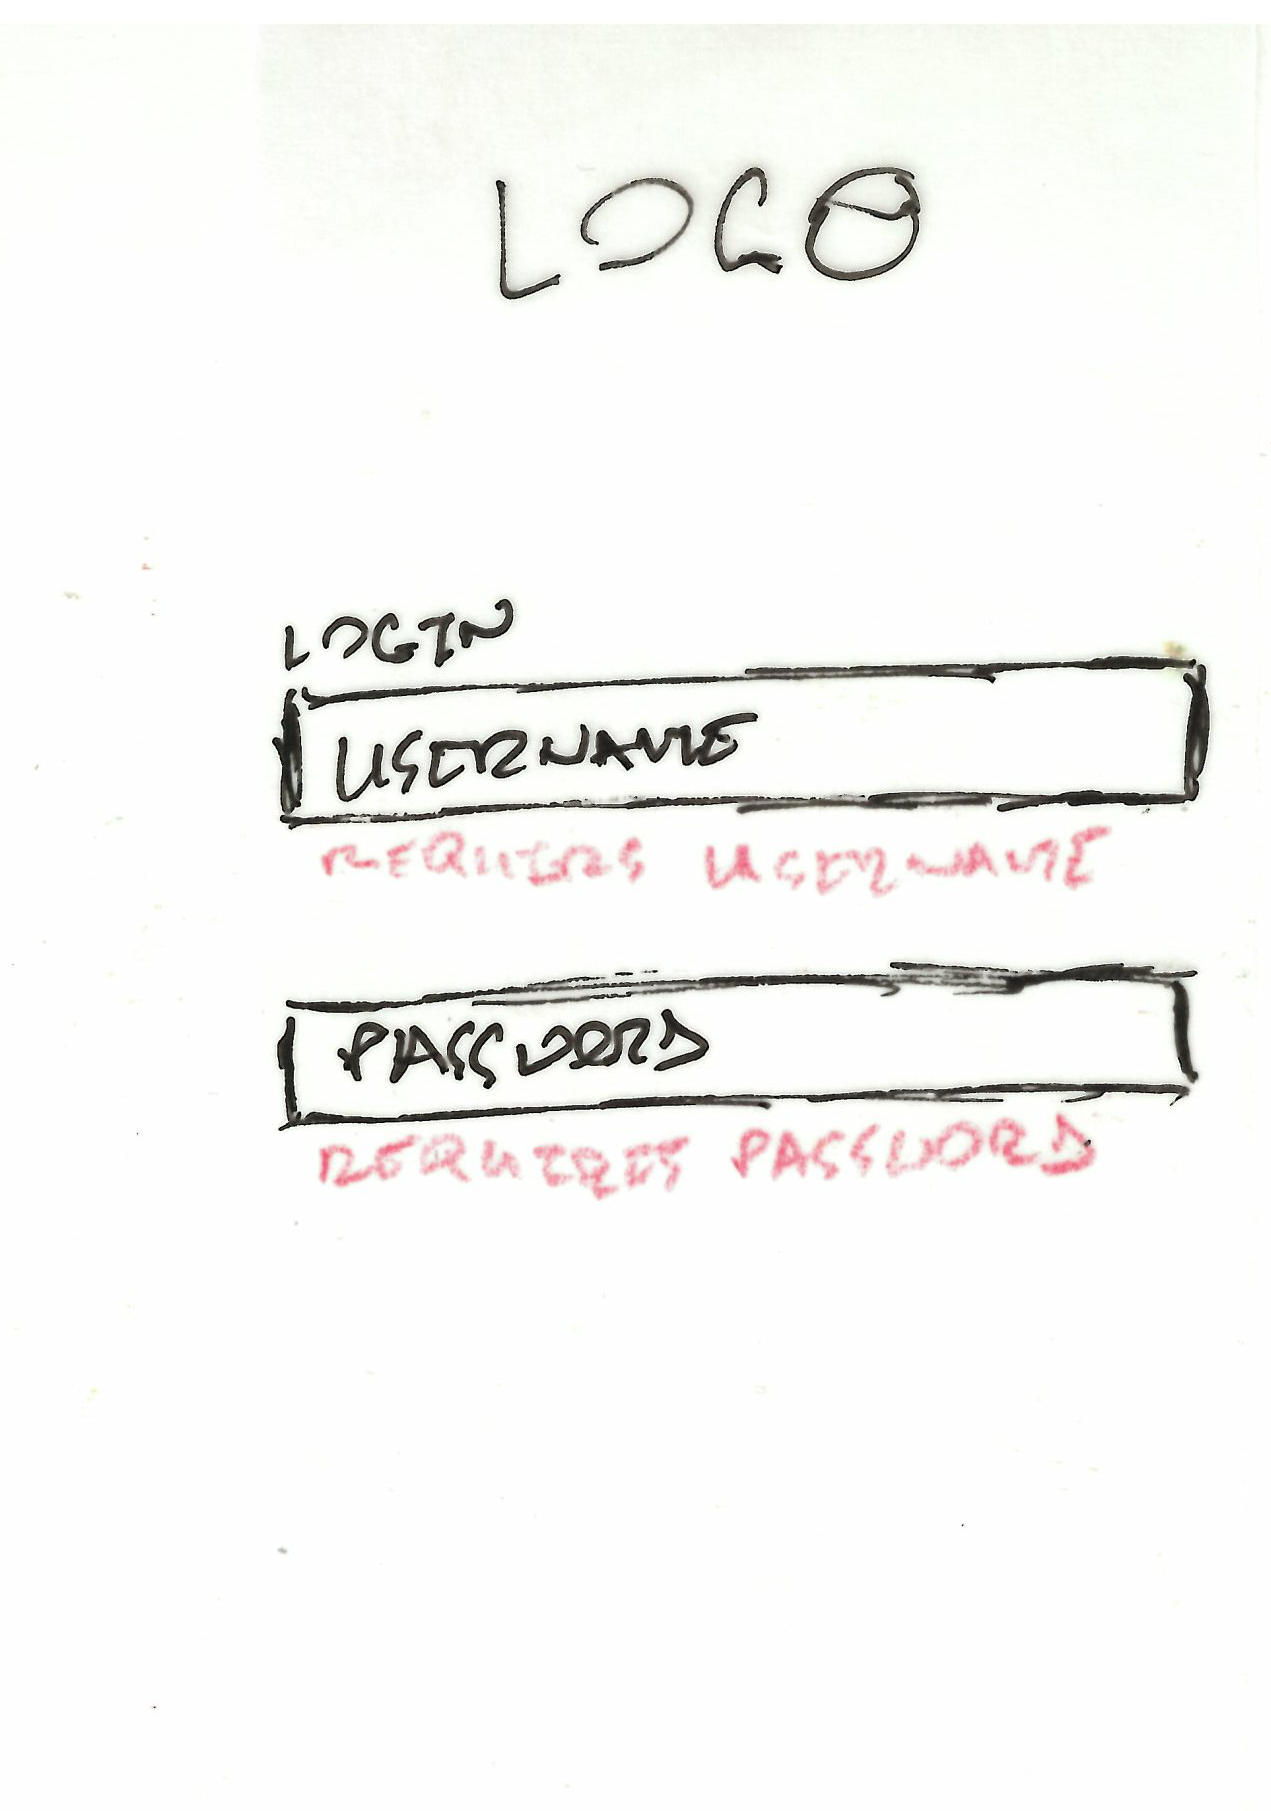 LOGO
LOGIN
USERNAME
REQUIERS USERNAME
PASSWORD
REQUIRES PASSWORD